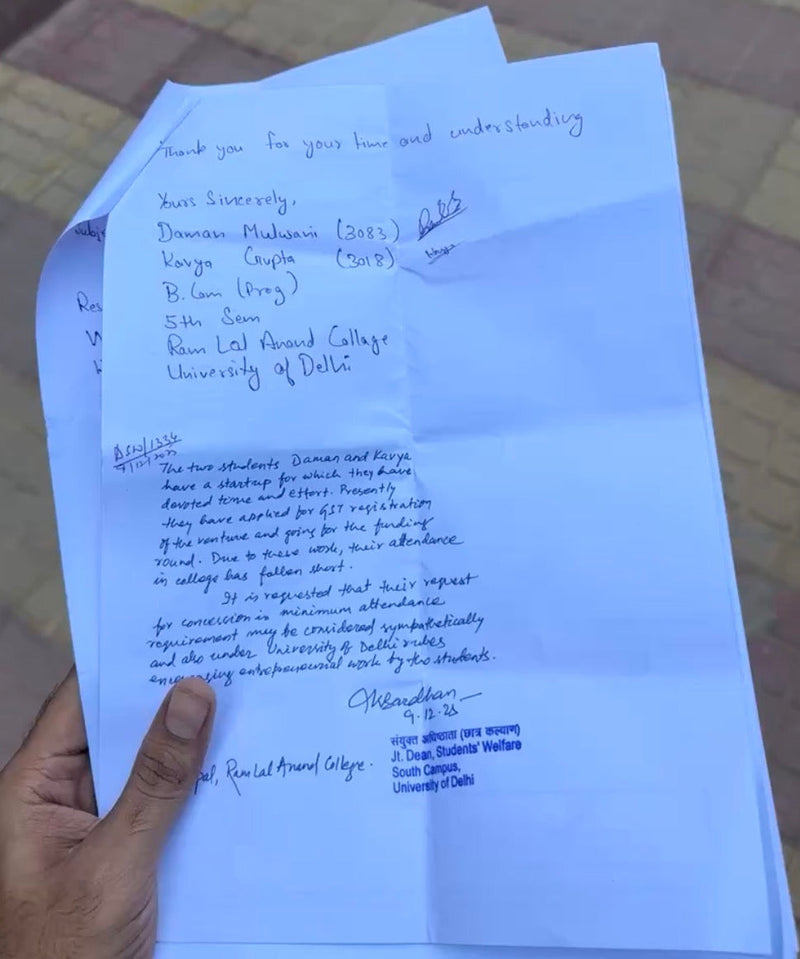 Thank you for your time and understanding
Yours Sincerely,
Daman Mulwani (3083)
Kavya Gupta (3018)
B. Com (Prog)
5th Sem
Ram Lal Anand Collage
University of Delhi
DSW/1334
The two students Daman and Kavya
have a startup for which they have
devoted time and effort. Presently
they have applied for GST registration
of the venture and going for the funding
round. Due to these work, their attendance
in college has fallen short.
It is requested that their request
for concession in minimum attendance
requirement may be considered sympathetically
and also under University of Delhi rules
entrepreneurial work by the students.
9.12.25
संयुक्त अधिष्ठाता (छात्र कल्याण)
Jt. Dean, Students' Welfare
South Campus,
University of Delhi
Ram Lal Anand College.
Res